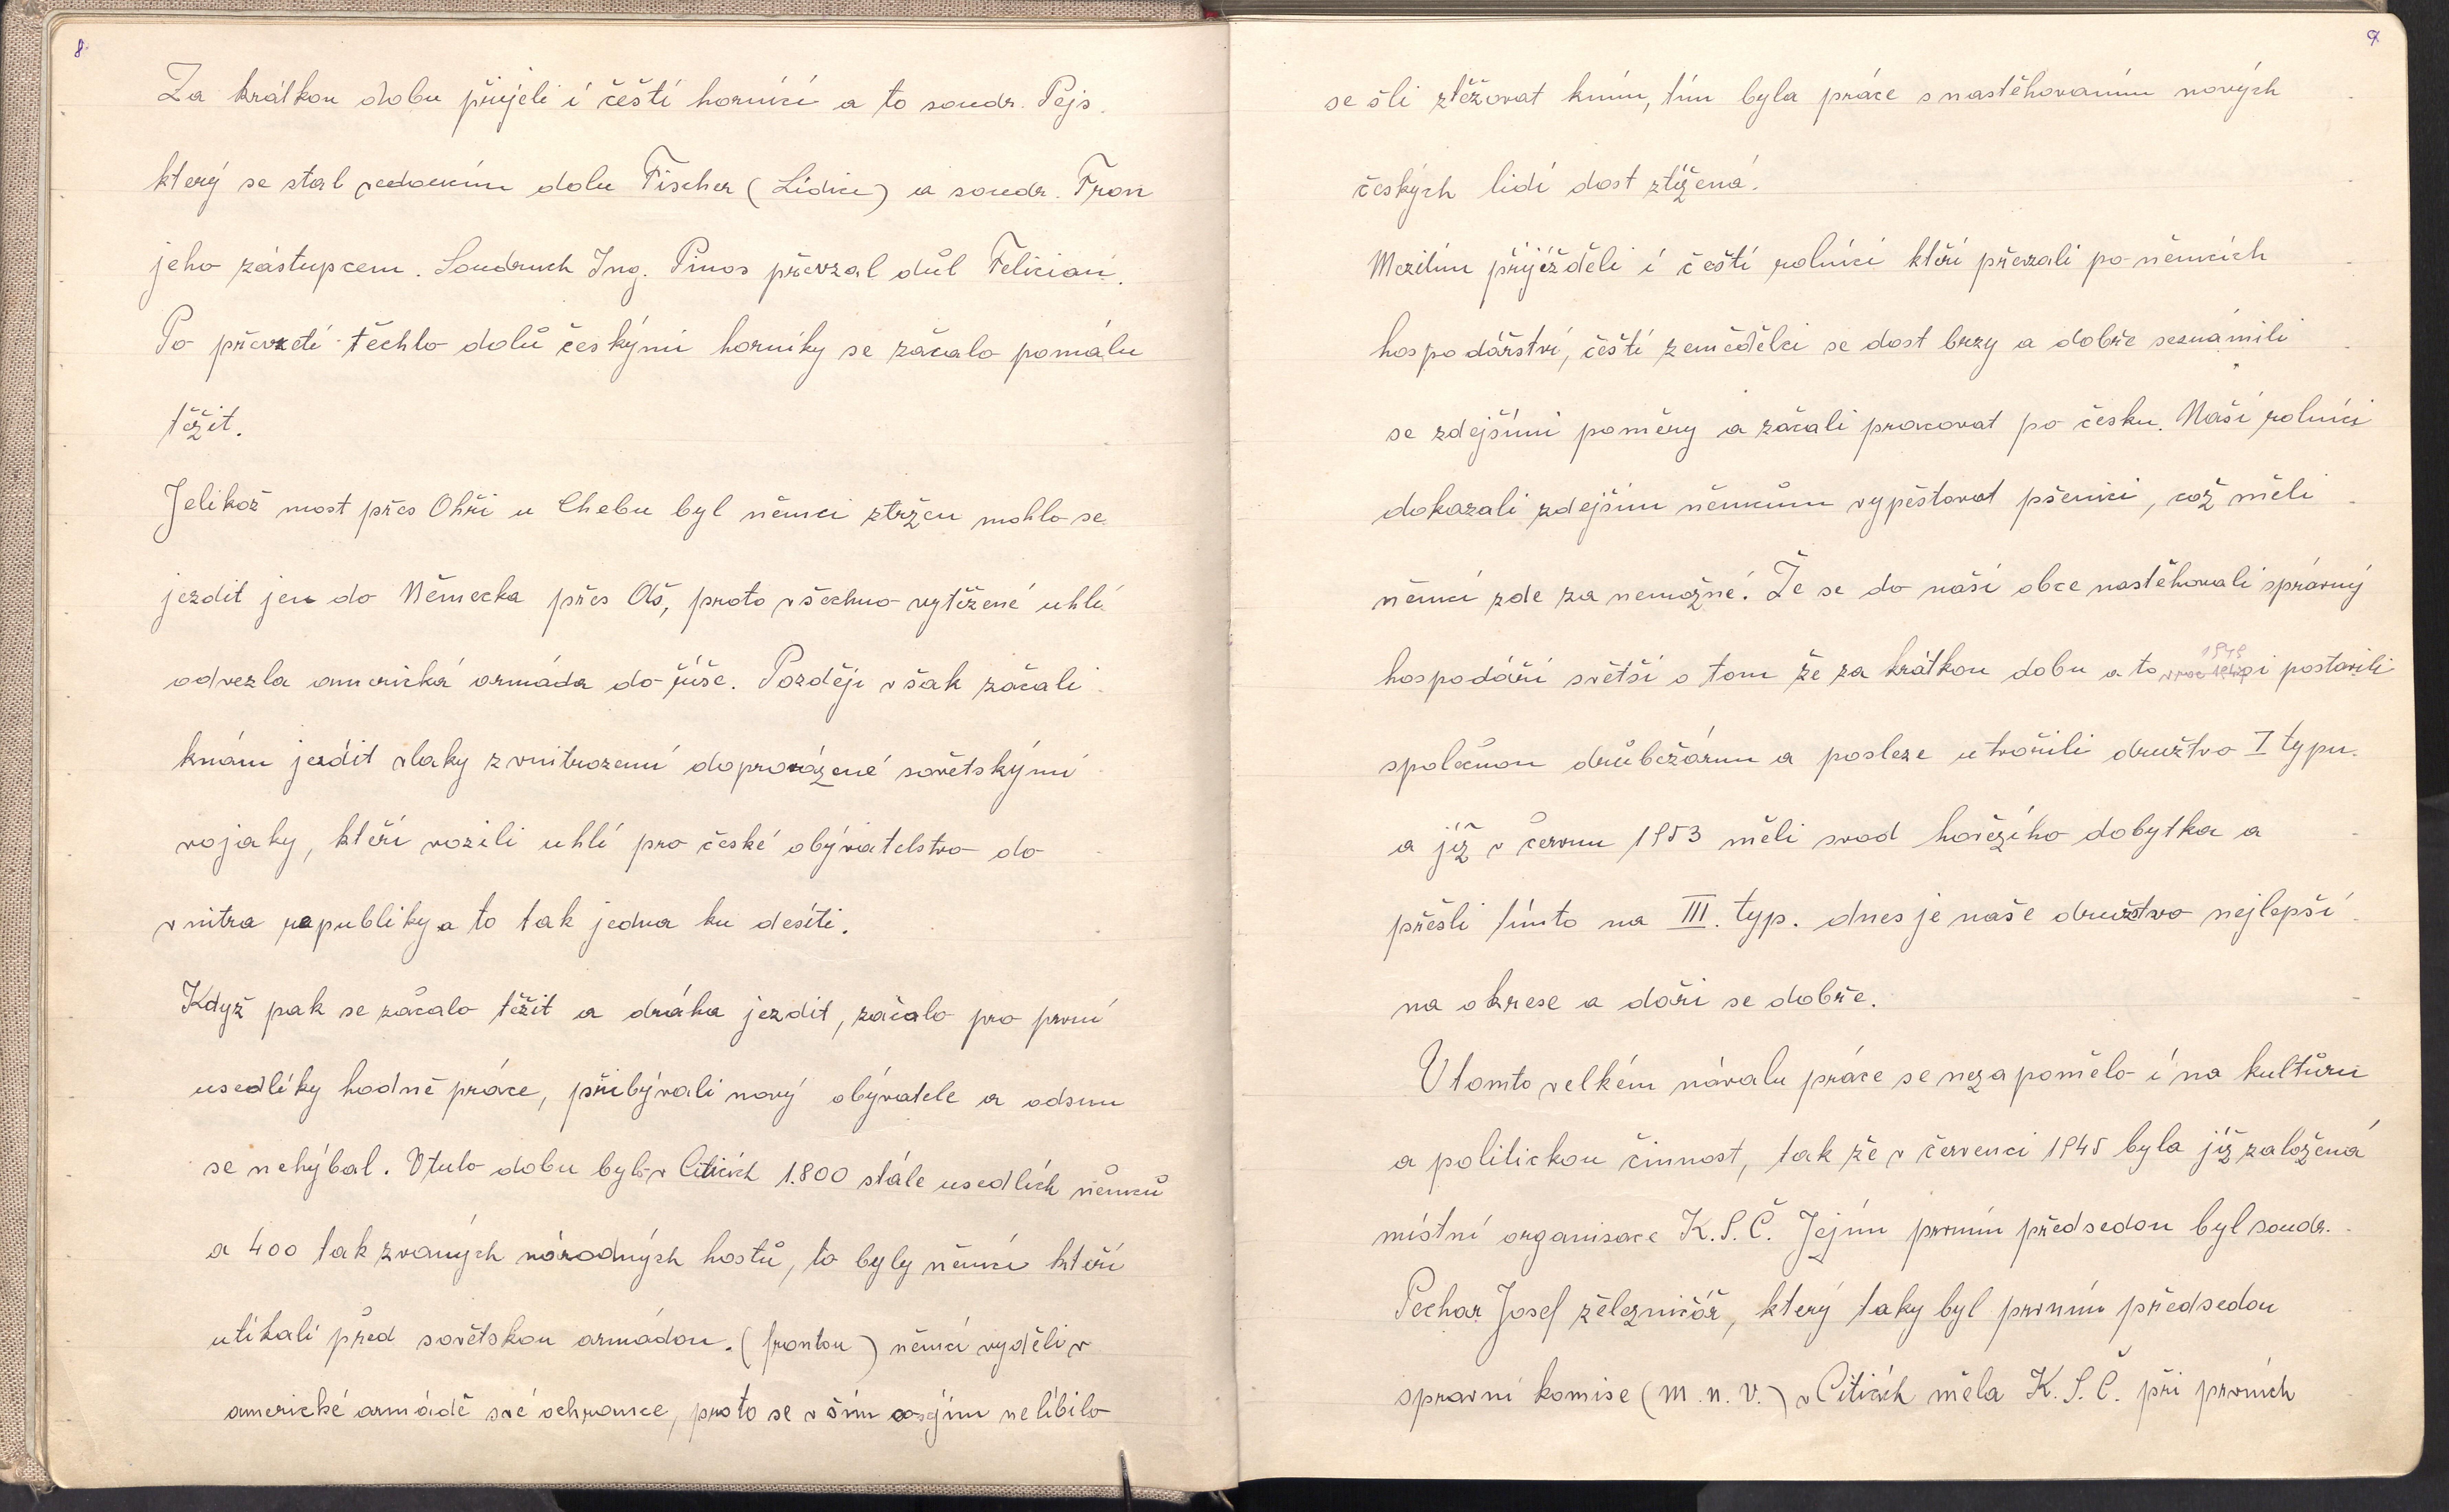 8
Za krátkou dobu přijeli i čeští horníci a to soudr. Pejs
který se stal vedoucím dolu Fischer (Lidice) a soudr. Fron
jeho zástupcem. Soudruch Ing. Pinos převzal důl Felicián.
Po převzetí těchto dolů českými horníky se začalo pomálu
těžit.
Jelikož most přes Ohři u Chebu byl němci ztržen mohlo se
jezdit jen do Německa přes Aš, proto všechno vytěžené uhlí
odvezla americká armáda do říše. Později však začali
knám jezdit vlaky z vnitrozemí doprovázené sovětskými
vojaky, kteří vozili uhlí pro české obývatelstvo do
vnitra republiky a to tak jedna ku desíti.
Když pak se začalo těžit a dráha jezdit, začalo pro první
usedlíky hodně práce, přibývali nový obývatele a odsun
se nehýbal. V tuto dobu bylo v Citicích 1.800 stále usedlích němců
a 400 tak zvaných národných hostů, to byly němci kteří
utíkali před sovětskou armádou. (frontou) němci vyděli v
americké armádě své ochrance, proto se vším nelíbilo
9
se šli ztěžovat kním, tím byla práce s nastěhovaním nových
českých lidí dost ztížená.
Mezitím přijéžděli i čeští rolníci kteří převzali po němcích
hospodářství, čeští zemědělci se dost brzy a dobře seznámili
se zdejšími poměry a začali pracovat po česku. Naši rolníci
dokazali zdejším němcům vypěstovat pšenici, což měli
němci zde za nemožné. Že se do naší obce nastěhovali správný
hospodáři světší o tom že za krátkou dobu a to 1949 si postavili
společnou drůbežárnu a posleze utvořili družstvo I typu.
a již v červnu 1953 měli svod hovězího dobytka a
přešli tímto na III. typ. dnes je naše družstvo nejlepší
na okrese a daří se dobře.
V tomto velkém návalu práce se nezapomělo i na kultůru
a politickou činnost, tak že v červenci 1945 byla již založená
místní organisace K.S.Č. Jejím prvním předsedou byl soudr.
Pechar Josef zělezničář, který taky byl prvním předsedou
spravní komise (M.n.V.) v Citicích měla K.S.Č. při prvních